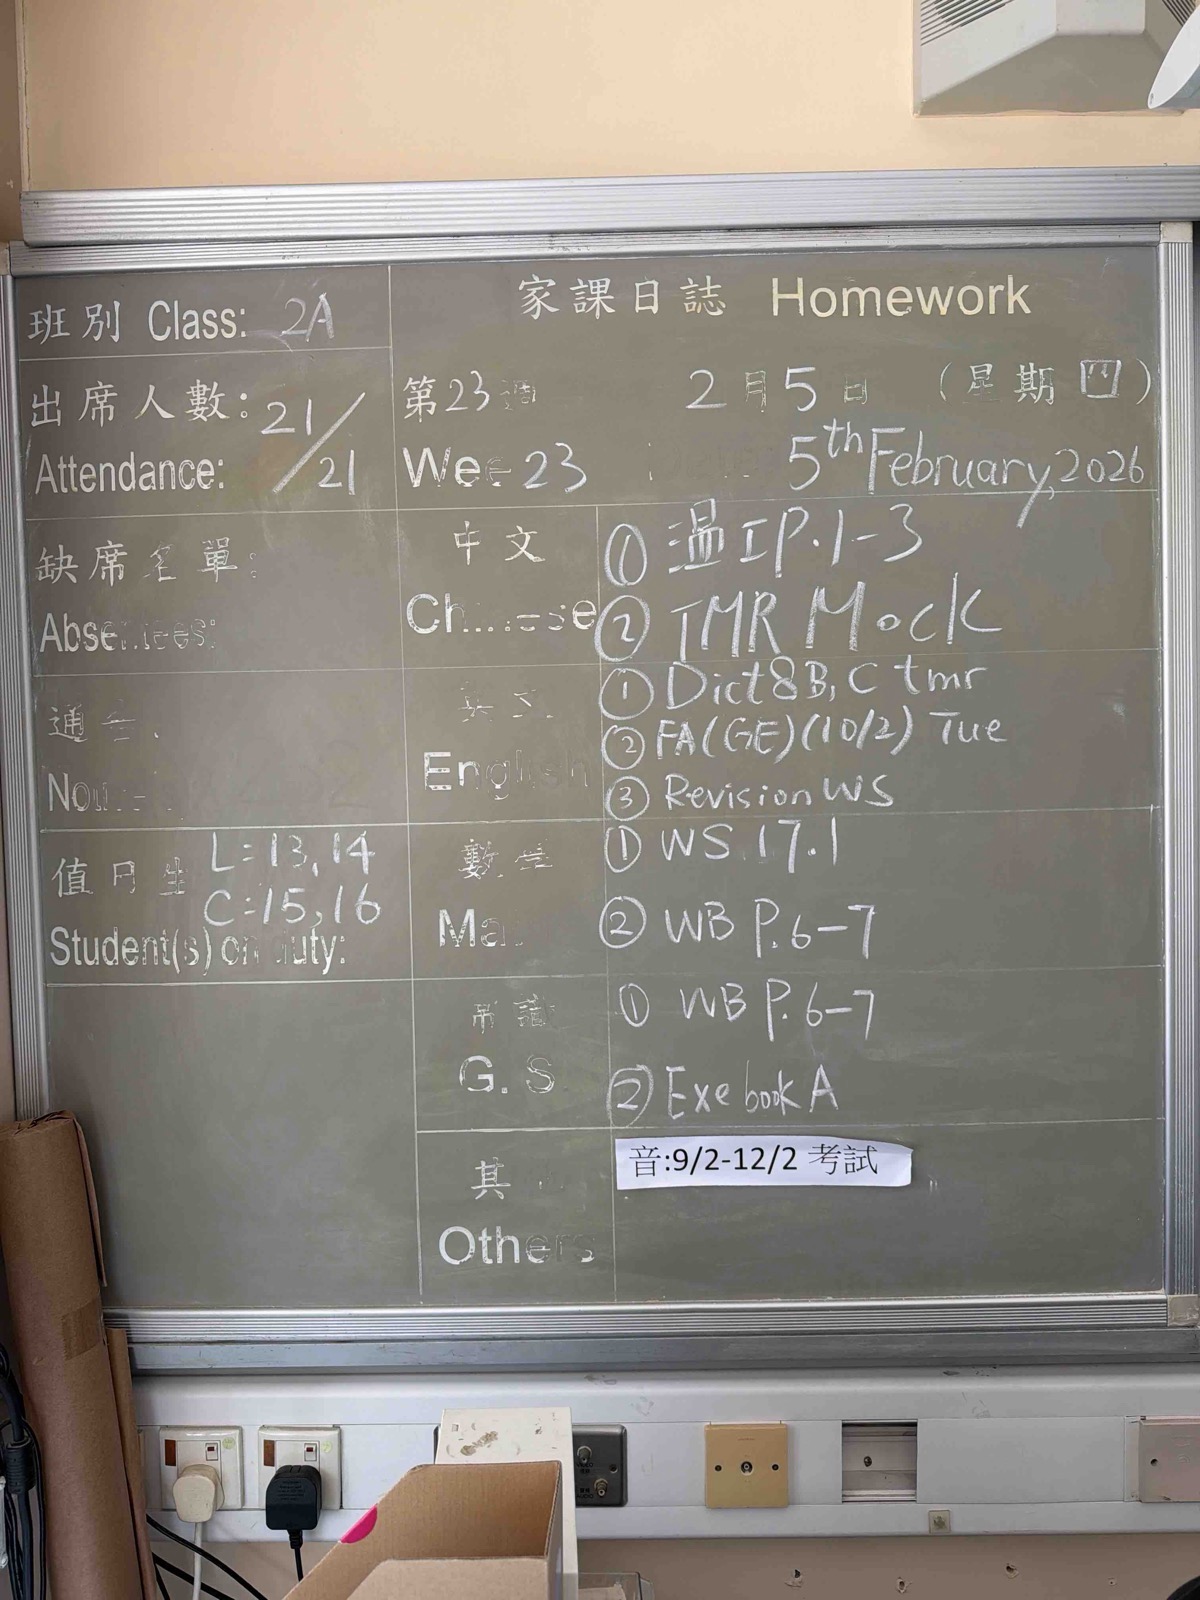 班別 Class: 2A
家課日誌 Homework
出席人數: 21/21
Attendance:
第23週 2月5日 (星期四)
Wee 23 5th February, 2026
缺席名單:
Absentees:
中文
Chinese
① 温IP.1-3
② TMR Mock
通告
英文
English
① Dict8B, C tmr
② FA(GE)(10/2) Tue
③ Revision WS
值日生 L=13,14
C=15,16
Student(s) on duty:
數學
Ma
① WS 17.1
② WB P.6-7
常識
G. S.
① WB P.6-7
② Exe book A
其
Others
音:9/2-12/2 考試